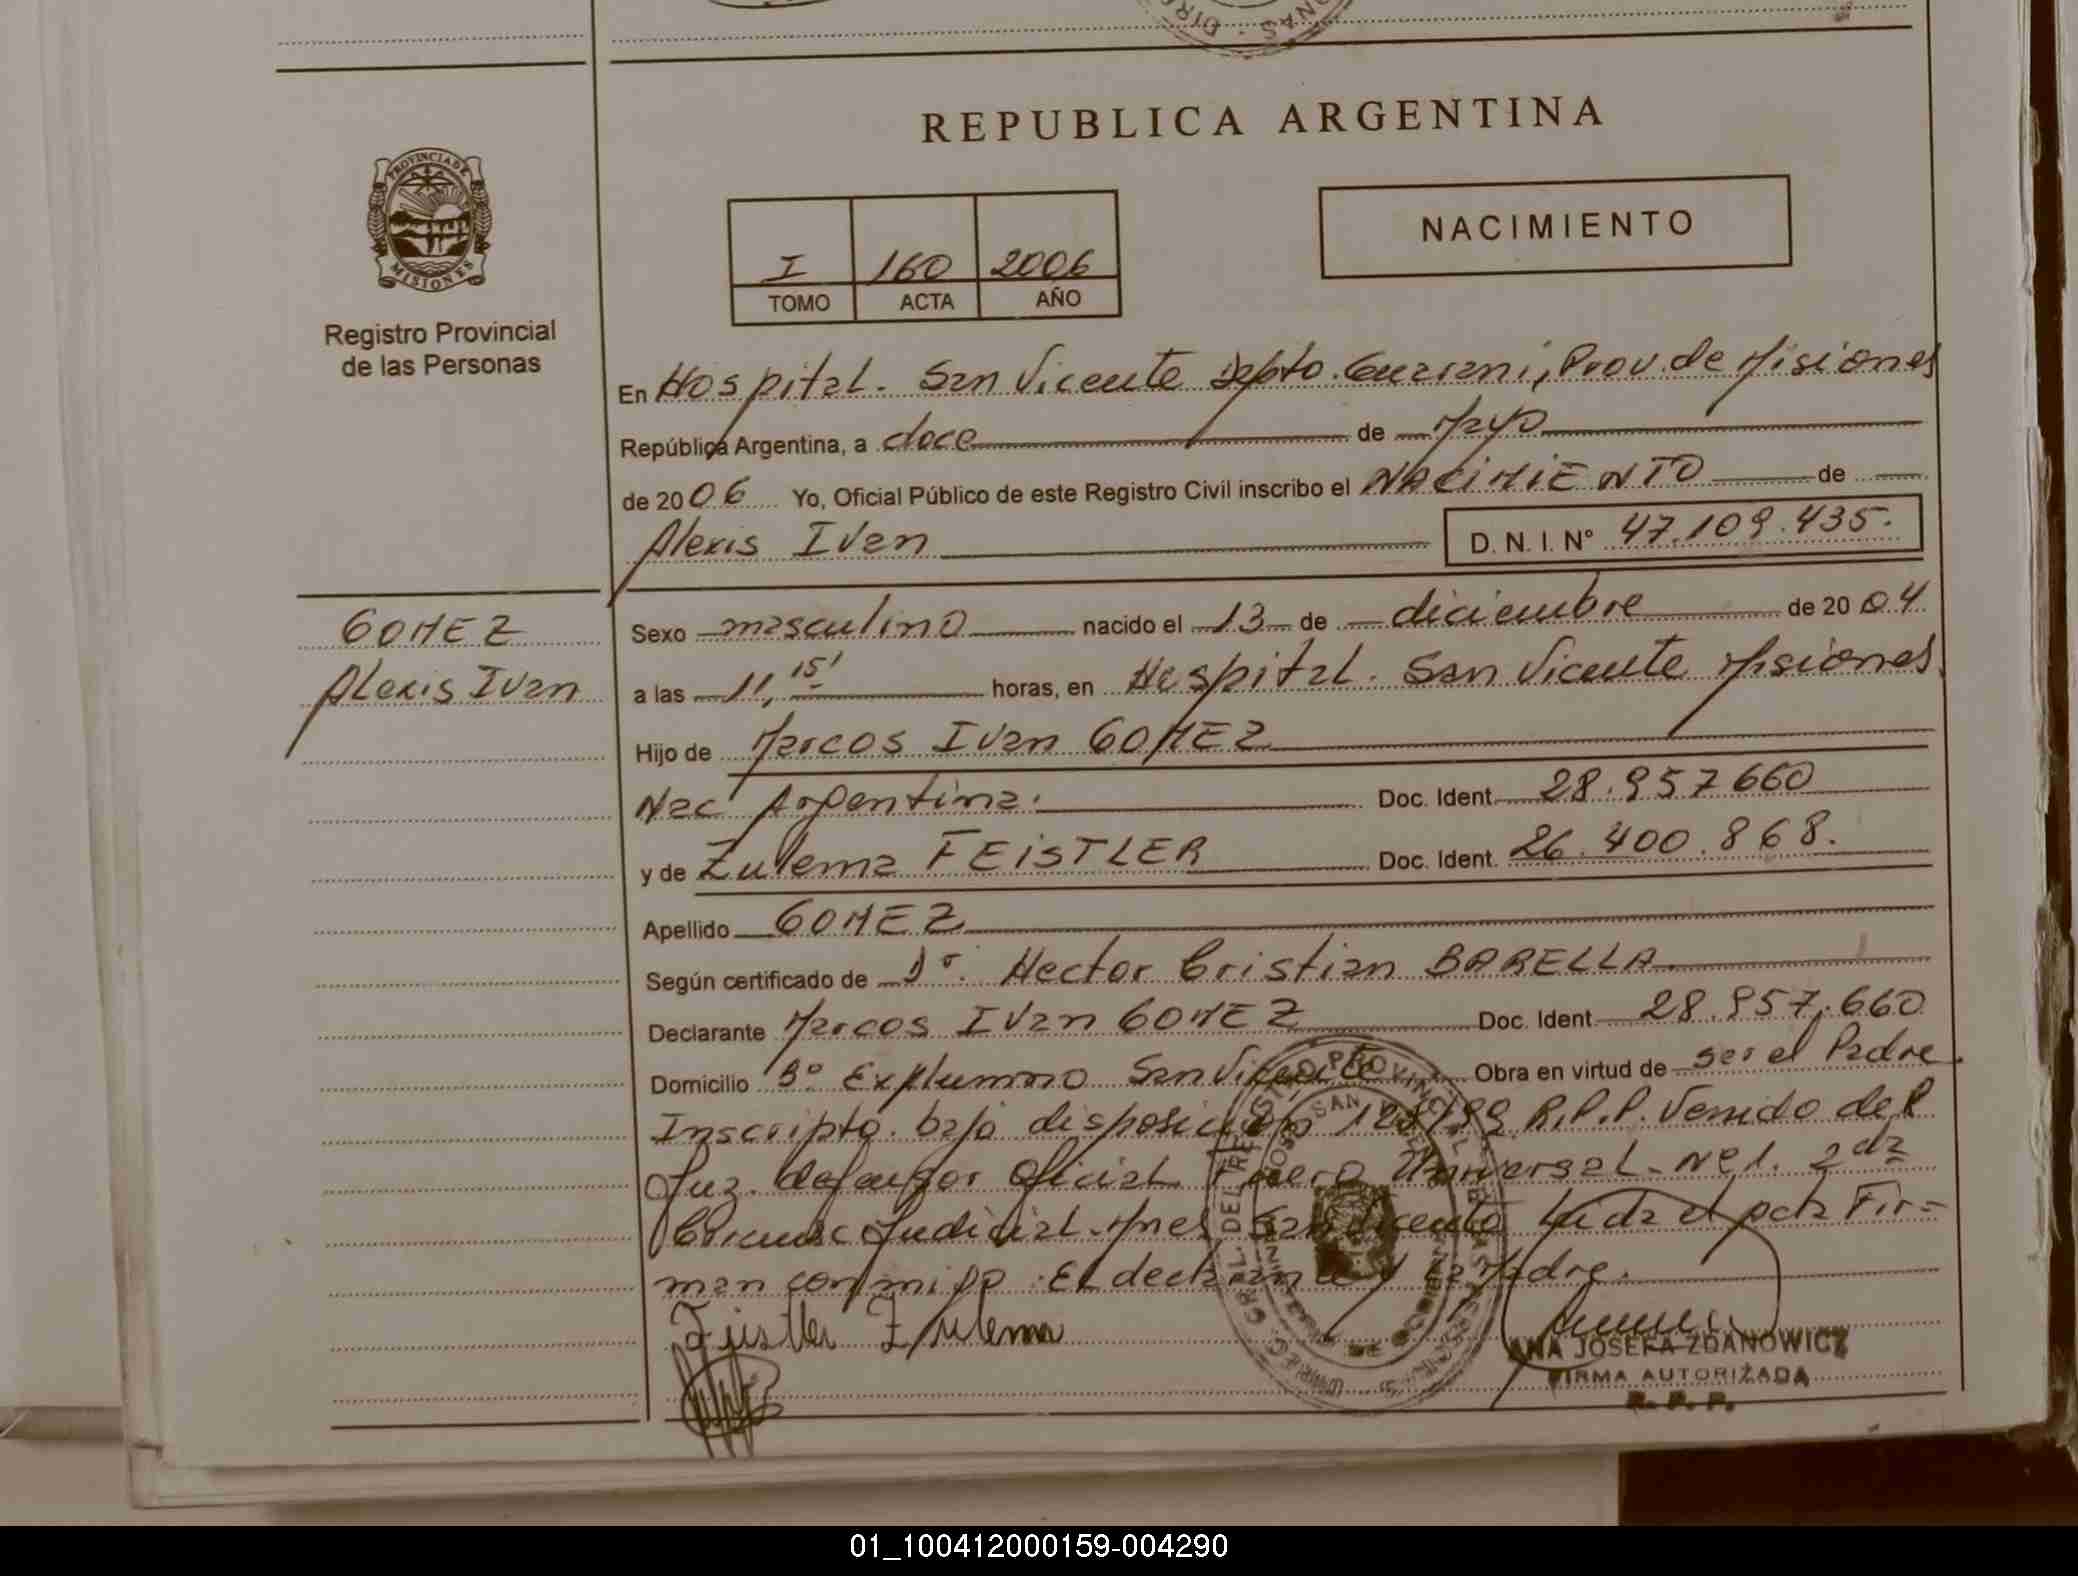 REPUBLICA ARGENTINA
PROVINCIA DE
MISIONES
Registro Provincial
de las Personas
NACIMIENTO
I 160 2006
TOMO ACTA AÑO
En Hospital. San Vicente Depto. Guarani, Prov. de Misiones
República Argentina, a doce de Mayo
de 2006 Yo, Oficial Público de este Registro Civil inscribo el NACIMIENTO de
Alexis Ivan D. N. I. Nº 47.109.435.
GOMEZ
Alexis Ivan
Sexo masculino nacido el 13 de diciembre de 2004
a las 11,15' horas, en Hospital. San Vicente Misiones.
Hijo de Marcos Ivan GOMEZ
Nac Argentina. Doc. Ident. 28.957660
y de Zulema FEISTLER Doc. Ident. 26.400.868.
Apellido GOMEZ
Según certificado de Dr. Hector Cristian BARELLA
Declarante Marcos Ivan GOMEZ Doc. Ident 28.957.660
Domicilio Bº Explummo San Vicente Obra en virtud de ser el Padre.
Inscripto bajo disposición 128/99 R.P.P. Venido del
Juz. defensor Oficial Fuero Universal Nº 1. 2da
Circunsc Judicial Mnes San Vicente Leida el acta Fir=
man conmigo El declarante y la Madre.
Feistler Zulema
ANA JOSEFA ZDANOWICZ
FIRMA AUTORIZADA
R. P. P.
01_100412000159-004290